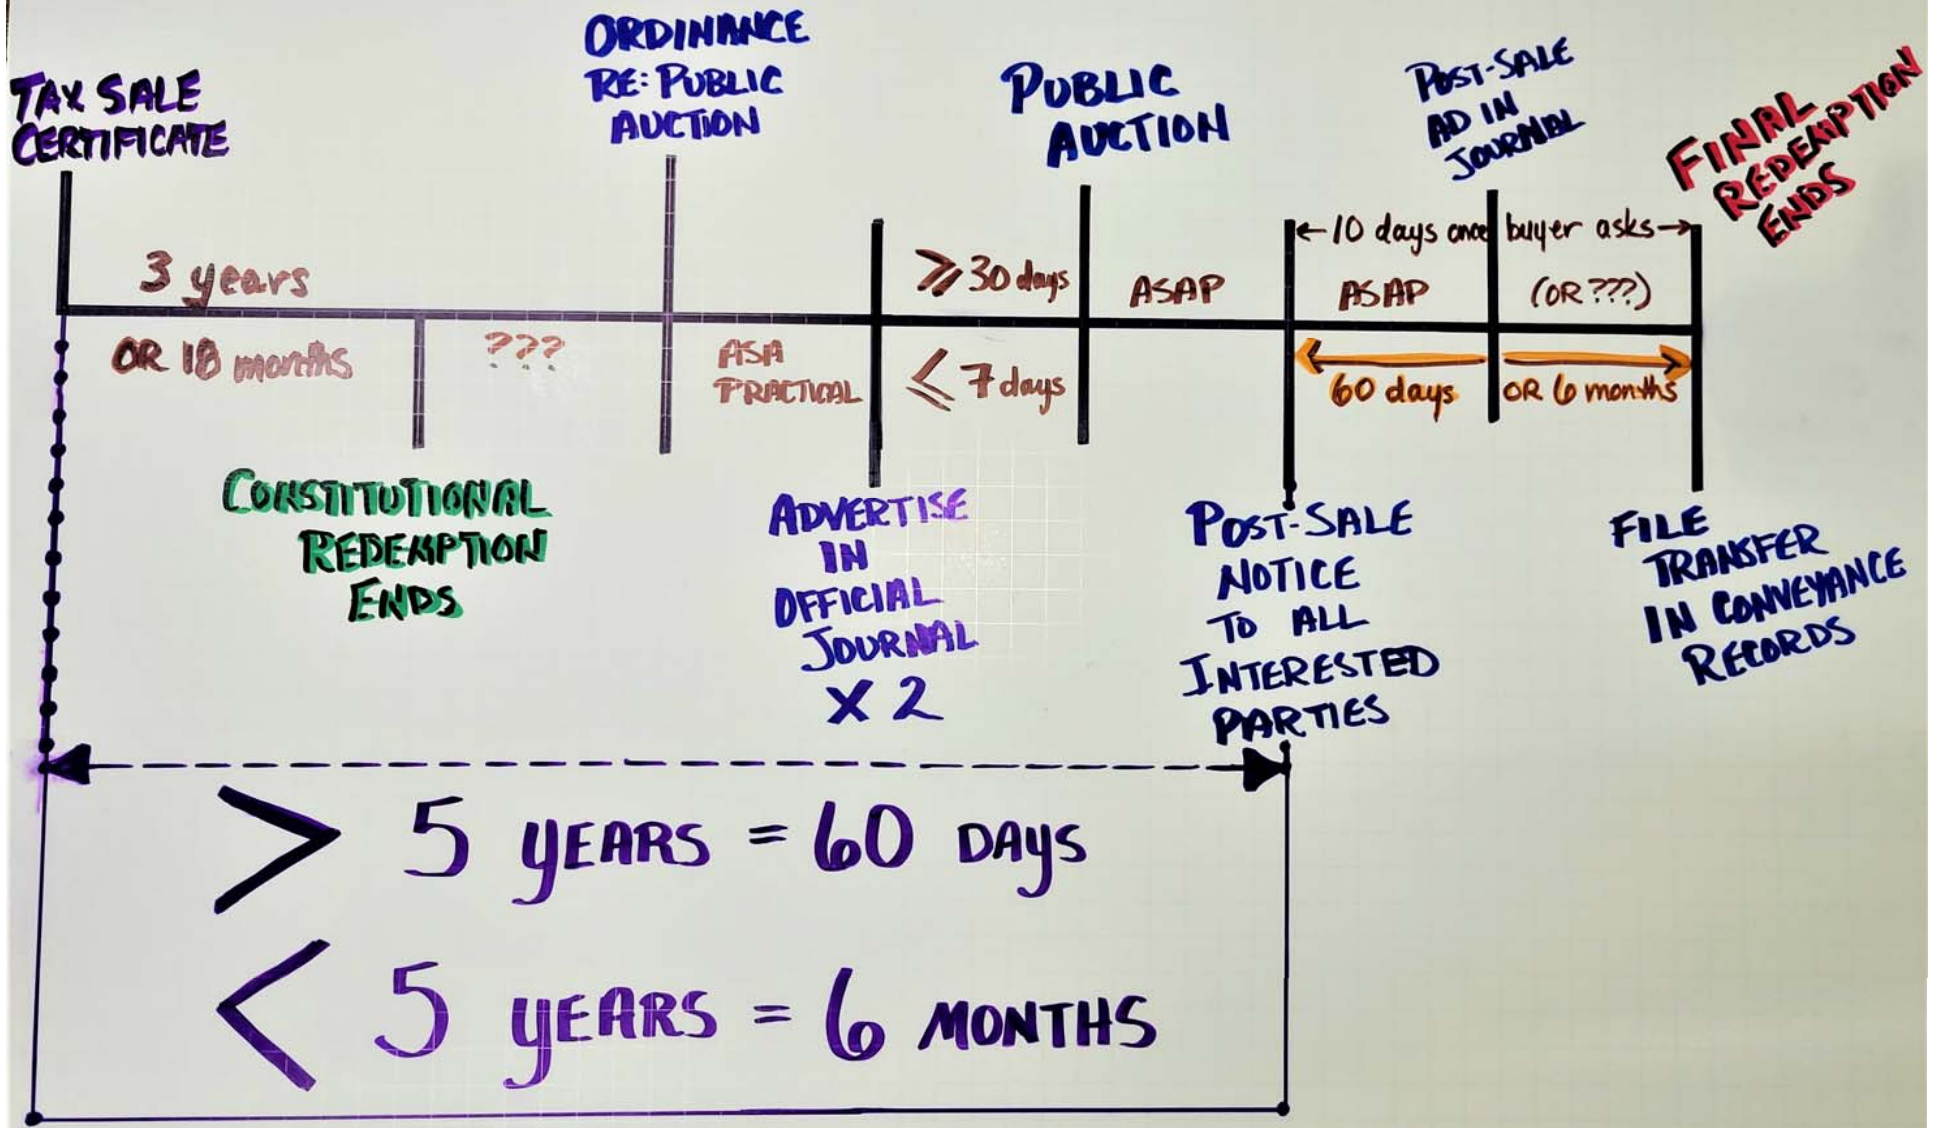 TAX SALE
CERTIFICATE
ORDINANCE
RE: PUBLIC
AUCTION
PUBLIC
AUCTION
POST-SALE
AD IN
JOURNAL
FINAL
REDEMPTION
ENDS
3 years
OR 18 months
???
ASA
PRACTICAL
≥ 30 days
≤ 7 days
ASAP
←10 days once buyer asks→
ASAP
(OR ???)
60 days
OR 6 months
CONSTITUTIONAL
REDEMPTION
ENDS
ADVERTISE
IN
OFFICIAL
JOURNAL
X 2
POST-SALE
NOTICE
TO ALL
INTERESTED
PARTIES
FILE
TRANSFER
IN CONVEYANCE
RECORDS
> 5 YEARS = 60 DAYS
< 5 YEARS = 6 MONTHS